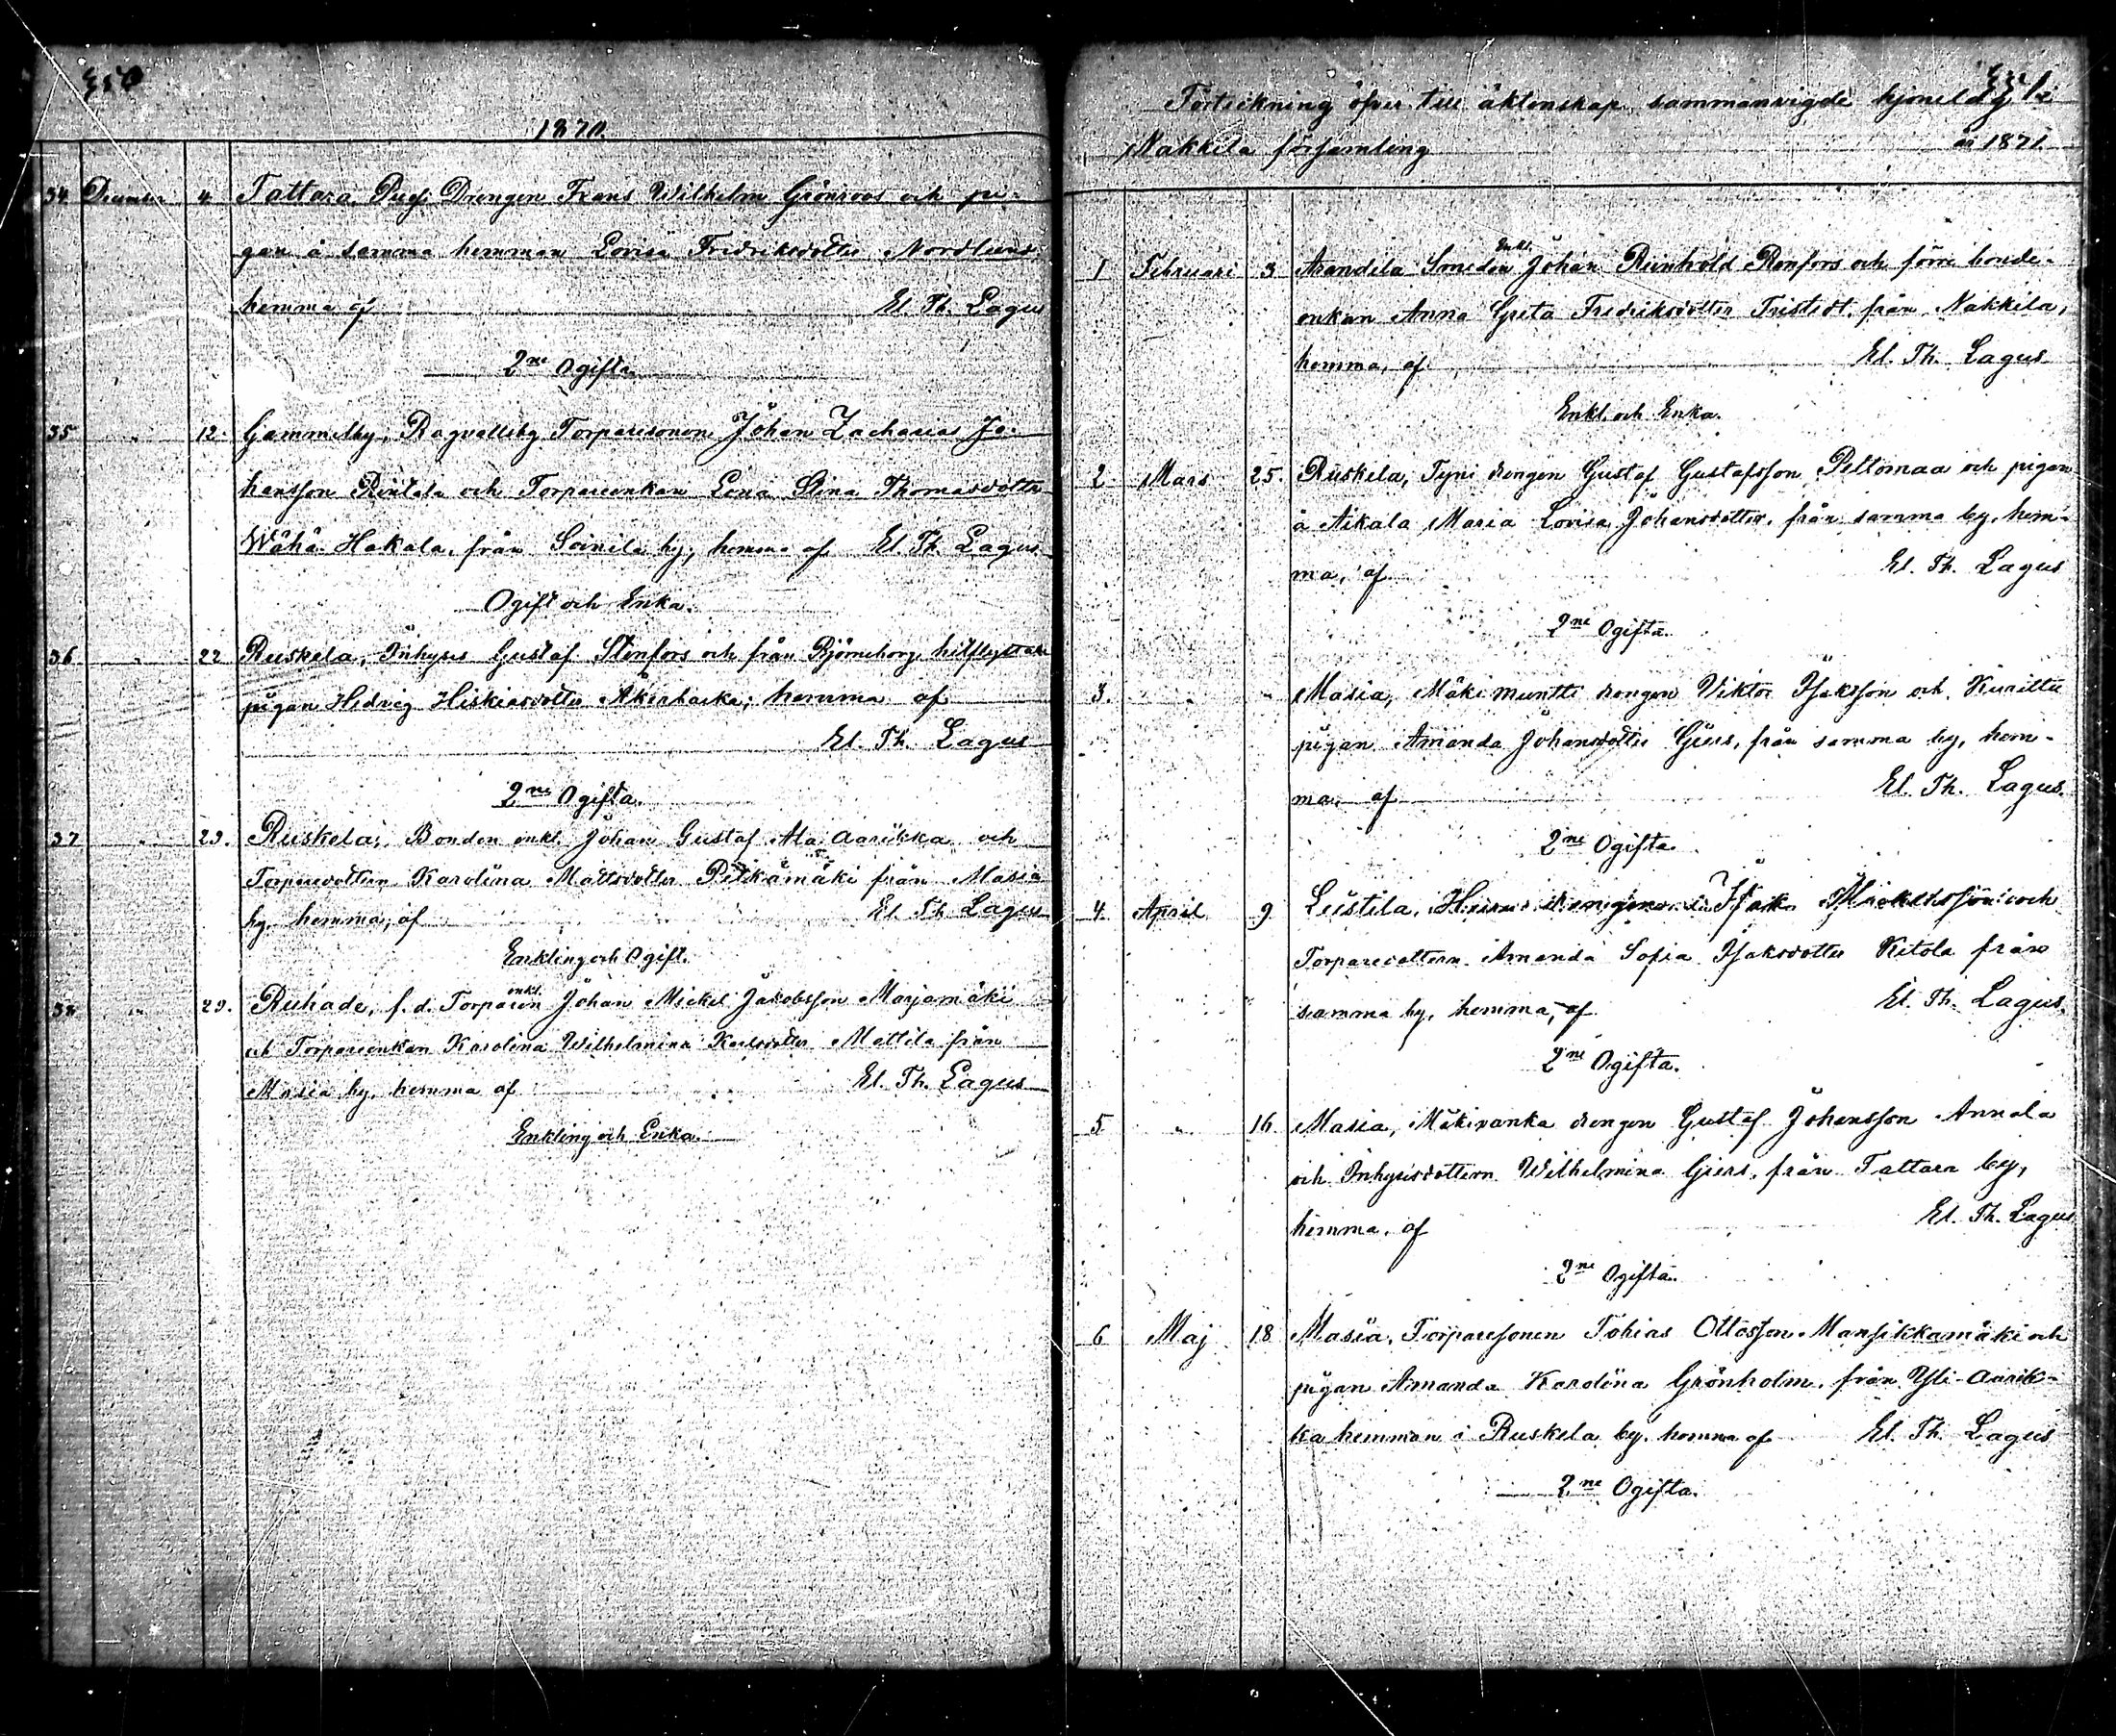 350
1870
34 December 4 Tattara, Pueß Drengen Frans Wilhelm Grönroos och pi-
gan å samma hemman Lovisa Fredriksdotter Nordlund
hemma af El. Th. Lagus
2ne Ogifta.
35 " 12. Gammelby, Ragvaldsby Torparesonen Johan Zacharias Jo-
hansson Rintala och Torpareenkan Lena Stina Thomasdotter
Wähä Hakala, från Soinila by, hemma af El. Th. Lagus
Ogift och Enka.
36 " 22 Ruskela, Inhyses Gustaf Stenfors och från Björneborg hitflyttade
pigan Hedvig Hiskiasdotter Akerbacka; hemma af
El. Th. Lagus
2ne Ogifta.
37 " 29. Ruskela, Bonden enkl. Johan Gustaf Ala Aarikka och
Torparedottern Karolina Mattsdotter Pitkämäki från Masia
by hemma, af El Th. Lagus
Enkling och Ogift.
38 " 29. Ruhade, f. d. Torparen enkl. Johan Mickel Jakobsson Marjamäki
och Torpareenkan Karolina Wilhelmina Karlsdotter Mattila från
Masia by, hemma af El. Th. Lagus
Enkling och Enka.
Förteckning öfver till äktenskap sammanvigde hjonelag i
Nakkila församling år 1871
1 Februari 3 Arandila Smeden Enkl. Johan Reinhold Renfors och förre bonde-
enkan Anna Greta Fredriksdotter Fristedt, från Nakkila,
hemma, af El. Th. Lagus
Enkl. och Enka.
2 Mars 25. Ruskela, Tyni drengen Gustaf Gustafsson Peltomaa och pigan
å Aikala Maria Lovisa Johansdotter, från samma by, hem-
ma, af El. Th. Lagus
2ne Ogifta.
3. " " Masia, Mäkimuntti drengen Viktor Isaksson och Kurittu
pigan Amanda Johansdotter Giers, från samma by, hem-
ma, af El. Th. Lagus.
2ne Ogifta
4. April 9 Leistila, drengen Isak Mickelsson och
Torparedottern Amanda Sofia Isaksdotter Ketola från
samma by, hemma, af El. Th. Lagus.
2ne Ogifta.
5 " 16. Masia, Mäkivanka drengen Gustaf Johansson Annala
och Inhysesdottern Wilhelmina Giers, från Tattara by,
hemma, af El. Th. Lagus
2ne Ogifta.
6 Maj 18 Masia, Torparesonen Tobias Ottosson Mansikkamäki och
pigan Amanda Karolina Grönholm, från Yli-Aarik-
ka hemman i Ruskela by, hemma af El. Th. Lagus
2ne Ogifta.